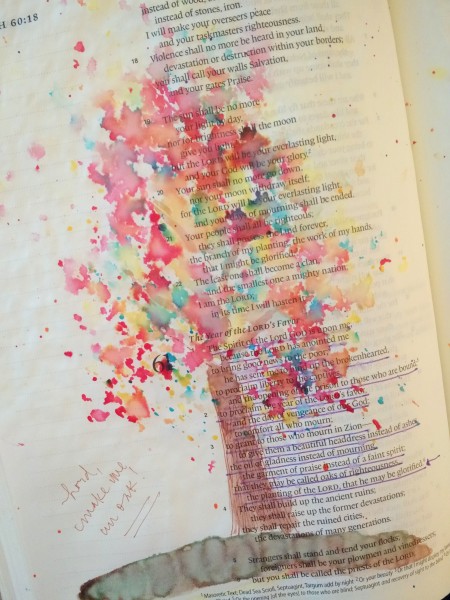 H 60:18
instead of wood,
instead of stones, iron.
I will make your overseers peace
and your taskmasters righteousness.
18 Violence shall no more be heard in your land,
devastation or destruction within your borders;
you shall call your walls Salvation,
and your gates Praise.
19 The sun shall be no more
your light by day,
nor for brightness shall the moon
give you light;
but the LORD will be your everlasting light,
and your God will be your glory.
20 Your sun shall no more go down,
nor your moon withdraw itself;
for the LORD will be your everlasting light,
and your days of mourning shall be ended.
21 Your people shall all be righteous;
they shall possess the land forever,
the branch of my planting, the work of my hands,
that I might be glorified.
22 The least one shall become a clan,
and the smallest one a mighty nation;
I am the LORD;
in its time I will hasten it.
The Year of the LORD's Favor
6 The Spirit of the Lord GOD is upon me,
because the LORD has anointed me
to bring good news to the poor;
he has sent me to bind up the brokenhearted,
to proclaim liberty to the captives,
and the opening of the prison to those who are bound;
2 to proclaim the year of the LORD's favor,
and the day of vengeance of our God;
to comfort all who mourn;
3 to grant to those who mourn in Zion—
to give them a beautiful headdress instead of ashes,
the oil of gladness instead of mourning,
the garment of praise instead of a faint spirit;
that they may be called oaks of righteousness,
the planting of the LORD, that he may be glorified.
4 They shall build up the ancient ruins;
they shall raise up the former devastations;
they shall repair the ruined cities,
the devastations of many generations.
5 Strangers shall stand and tend your flocks;
foreigners shall be your plowmen and vinedressers;
6 but you shall be called the priests of the LORD;
Lord,
make me
an oak.